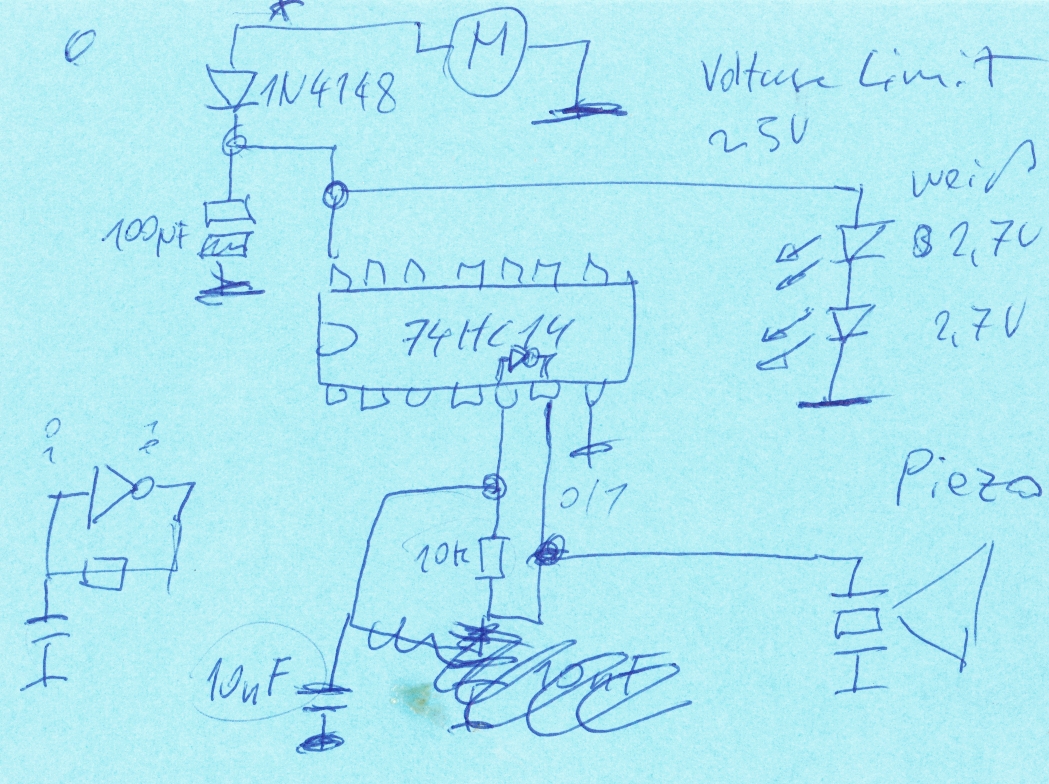 M
1N4148
Voltage Limit
2,5V
weiß
100µF
2,7V
2,7V
74HC14
0 1
1 0
0/1
Piezo
10k
10nF
10nF